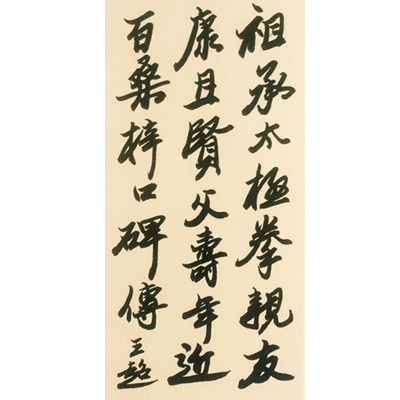 祖承太極拳親友
康且賢父壽年近
百桑梓口碑傳
王超